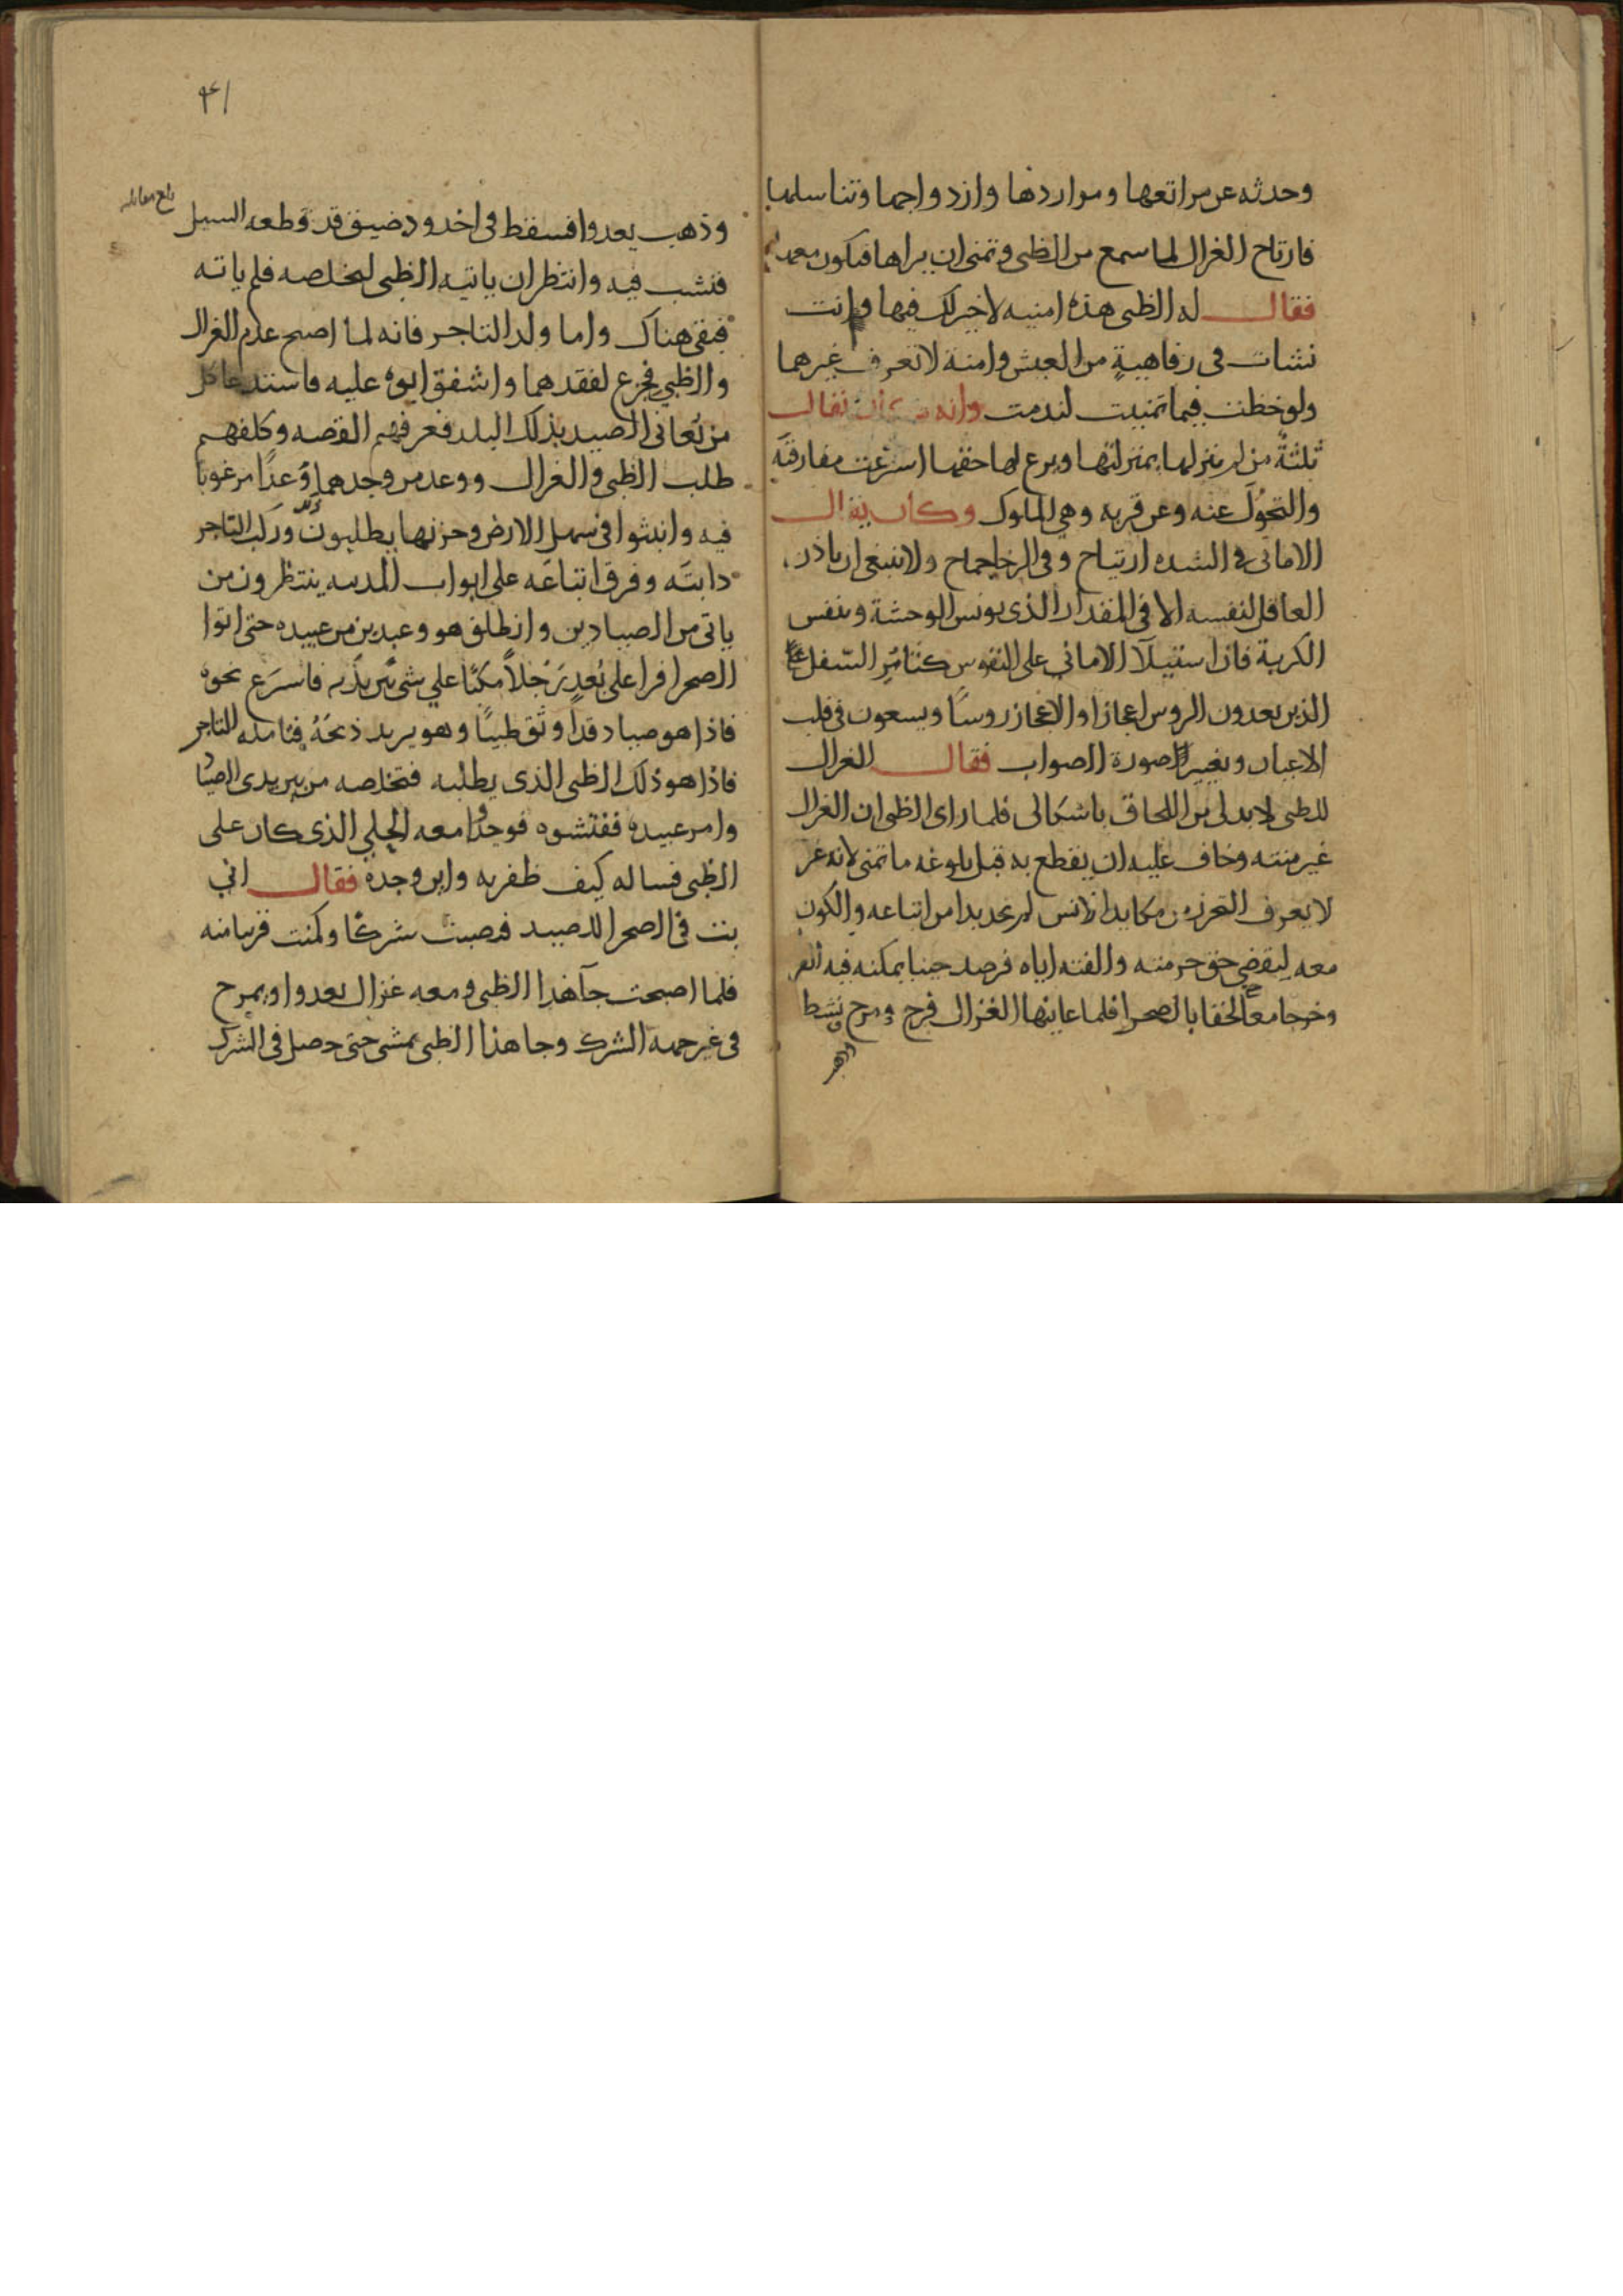 وحدثه عن مراتعها ومواردها وازدواجها وتناسلها
فارتاح الغزال لما سمع من الظبى وتمنى ان يراها فيكون معها
فقال له الظبى هذه امنيه لاخير لك فيها وانت
نشات فى رفاهيةٍ من العيش وامنة لا تعرف غيرهما
ولو حظت فيما تمنيت لندمت وانه كان يقال
ثلثةٌ من لم ينزلها بمنزلتها ويرع لها حقها اسرعت مفارقته
والتحوّل عنه وعن قربه وهى الملوك وكان يقال
الامانى فى الشده ارتياح وفى الرخا جماح ولا ينبغى ان ياذن
العاقل لنفسه الا فى المقدار الذى يونس الوحشة وينفس
الكربة فاذا استيلآ الامانى على النفوس كتامّر السّفل
الذين يعدون الروس اعجازا والاعجاز روسًا ويسعون فى قلب
الاعيان وتغيير صورة الصواب فقال الغزال
للظبى لا بد لى من اللحاق باشكالى فلما راى الظبى ان الغزال
غير منته وخاف عليه ان يقطع به قبل بلوغه ما تمنى لانه غر
لا يعرف التحرز من مكايد الانس لم يجد بدا من اتباعه والكون
معه ليقضى حق حرمته والفته اياه فرصد حينا يمكنه فيه
وخرجا معا لحقا بالصحرا فلما عاينها الغزال فرح ومرح ونشط
وذهب
٤١
وذهب يعدوا فسقط فى اخدود ضيق قد قطعه السيل
فنشب فيه وانتظر ان ياتيه الظبى ليخلصه فلم ياته
فبقى هناك واما ولد التاجر فانه لما اصبح عدم الغزال
والظبى فجزع لفقدهما واشفق ابوه عليه فاستد عا كل
من يعانى الصيد بذلك البلد فعرفهم القصه وكلفهم
طلب الظبى والغزال ووعد من وجدهما وَعدًا مرغوبا
فيه وانبثوا فى سهل الارض وحزنها يطلبون وركب التاجر
دابته وفرق اتباعه على ابواب المدينه ينتظرون من
ياتى من الصيادين وانطلق هو وعبدين من عبيده حتى اتوا
الصحرا فراعلى بُعدٍ رَجُلاً مكبًا على شى بين يديه فاسرَع نحوه
فاذا هو صياد قد اوثق ظبيًا وهو يريد ذبحَهُ فتامله التاجر
فاذا هو ذلك الظبى الذى يطلبه فتخلصه من بين يدى الصياد
وامر عبيده ففتشوه فوجدوا معه الحلى الذى كان على
الظبى فساله كيف ظفر به واين وجده فقال انى
بت فى الصحرا للصيد فنصبت شركًا وكمنت قريبا منه
فلما اصبحت جآ هذا الظبى ومعه غزال يعدوا ويمرح
فى غير جهه الشرك وجا هذا الظبى يمشى حتى حصل فى الشرك